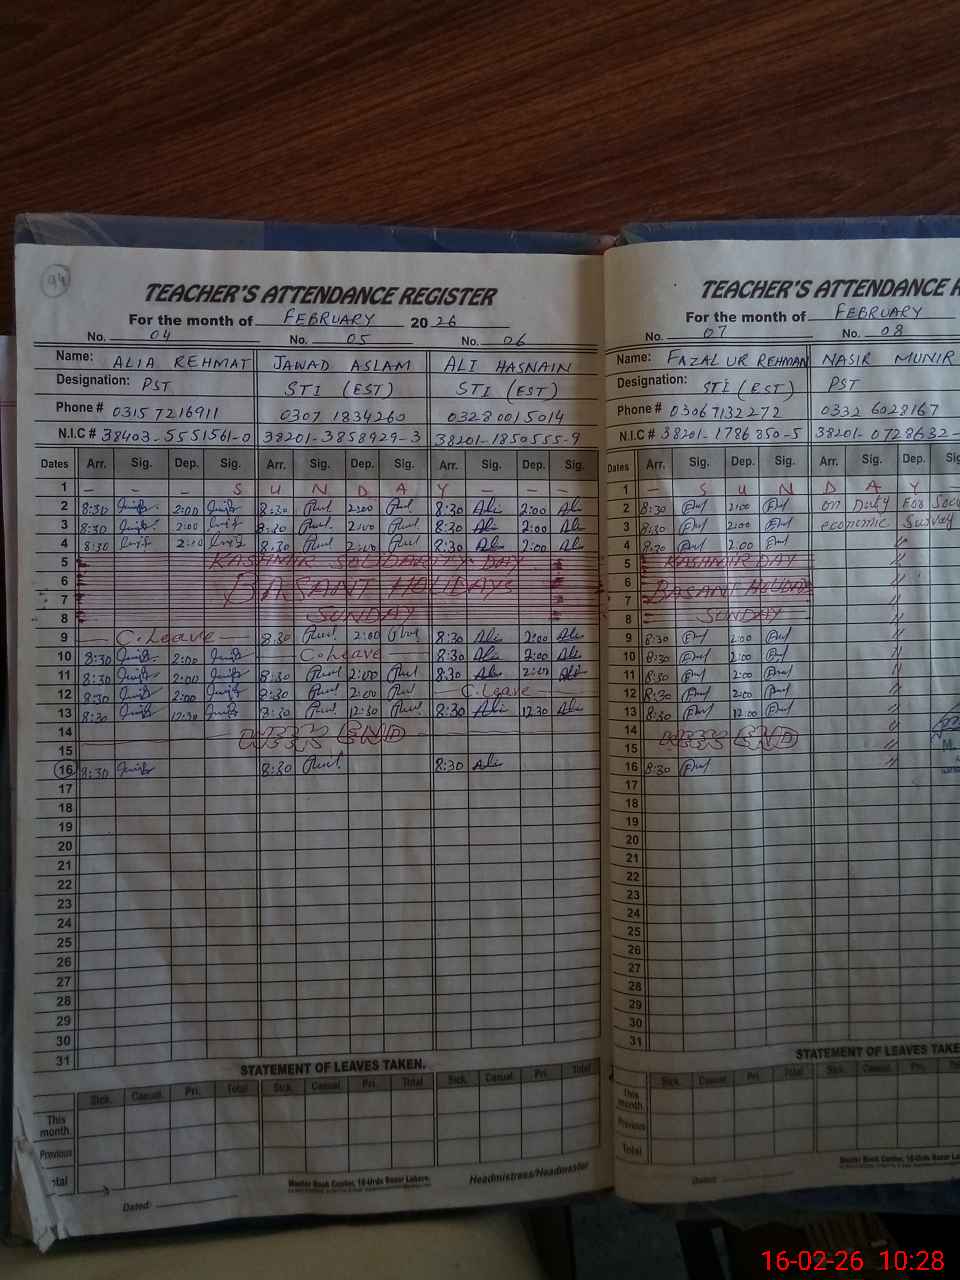 94
TEACHER'S ATTENDANCE REGISTER
For the month of FEBRUARY 2026
No. 04 No. 05 No. 06
Name: ALIA REHMAT JAWAD ASLAM ALI HASNAIN
Designation: PST STI (EST) STI (EST)
Phone # 0315 7216911 0307 1834260 03280015014
N.I.C # 38403-5551561-0 38201-3858929-3 38201-1850555-9
Dates Arr. Sig. Dep. Sig. Arr. Sig. Dep. Sig. Arr. Sig. Dep. Sig.
1 - - - S U N D A Y - - -
2 8:30 2:00 8:30 2:00 8:30 Ali 2:00 Ali
3 8:30 2:00 8:30 2:00 8:30 Ali 2:00 Ali
4 8:30 2:00 8:30 2:00 8:30 Ali 2:00 Ali
5 KASHMIR SOLIDARITY DAY
6 BASANT HOLIDAYS
7
8 SUNDAY
9 C.Leave 8:30 2:00 8:30 Ali 2:00 Ali
10 8:30 2:00 C.Leave 8:30 Ali 2:00 Ali
11 8:30 2:00 8:30 2:00 8:30 Ali 2:00 Ali
12 8:30 2:00 8:30 2:00 C.Leave
13 8:30 12:30 8:30 12:30 8:30 Ali 12:30 Ali
14 WEEK END
15
16 8:30 8:30 8:30 Ali
17
18
19
20
21
22
23
24
25
26
27
28
29
30
31
STATEMENT OF LEAVES TAKEN.
Sick. Casual. Pri. Total Sick. Casual. Pri. Total Sick. Casual. Pri. Total
This month.
Previous
Total
Dated: Master Book Center, 16-Urdu Bazar Lahore. Headmistress/Headmaster
TEACHER'S ATTENDANCE R
For the month of FEBRUARY
No. 07 No. 08
Name: FAZAL UR REHMAN NASIR MUNIR
Designation: STI (EST) PST
Phone # 03067132272 0332 6028167
N.I.C # 38201-1786350-5 38201-0728632-
Dates Arr. Sig. Dep. Sig. Arr. Sig. Dep. Sig.
1 - S U N D A Y -
2 8:30 2:00 on Duty For Soci
3 8:30 2:00 economic Survey
4 8:30 2:00 "
5 KASHMIR DAY "
6 BASANT HOLIDAY "
7 "
8 SUNDAY "
9 8:30 2:00 "
10 8:30 2:00 "
11 8:30 2:00 "
12 8:30 2:00 "
13 8:30 12:00 "
14 WEEK END "
15 "
16 8:30 "
17
18
19
20
21
22
23
24
25
26
27
28
29
30
31
STATEMENT OF LEAVES TAKE
Sick. Casual. Pri. Total Sick. Casual. Pri.
This month.
Previous
Total
Dated: Master Book Center, 16-Urdu Bazar Lahor
16-02-26 10:28